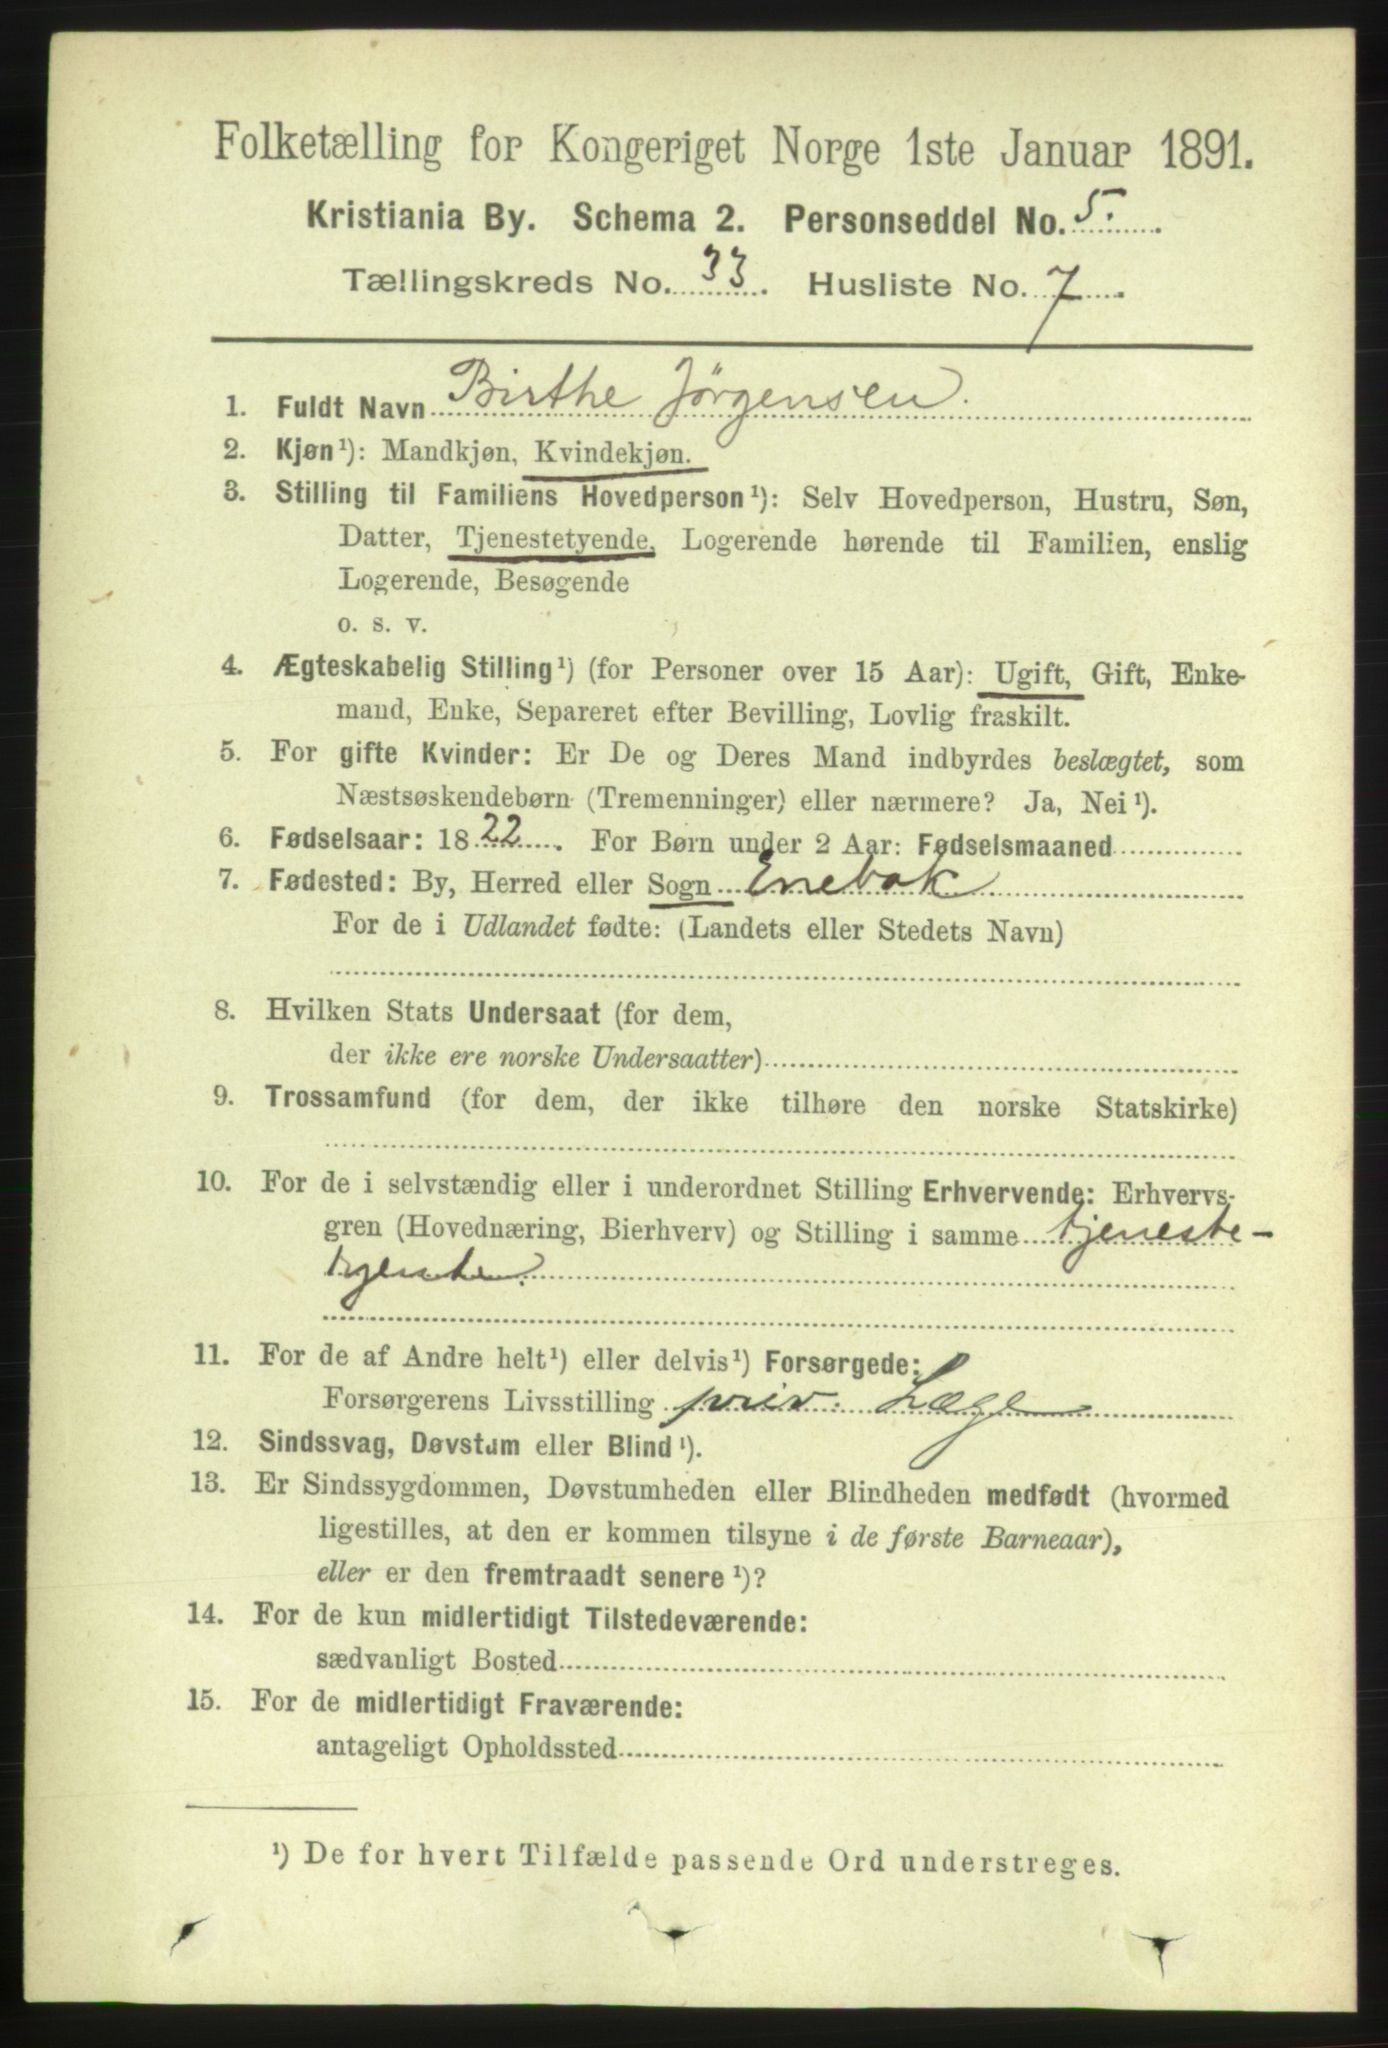 Folketælling for Kongeriget Norge 1ste Januar 1891.
Kristiania By. Schema 2. Personseddel No. 5.
Tællingskreds No. 33. Husliste No. 7.
1. Fuldt Navn Birthe Jørgensen.
2. Kjøn¹): Mandkjøn, Kvindekjøn.
3. Stilling til Familiens Hovedperson¹): Selv Hovedperson, Hustru, Søn,
Datter, Tjenestetyende, Logerende hørende til Familien, enslig
Logerende, Besøgende
o. s. v.
4. Ægteskabelig Stilling¹) (for Personer over 15 Aar): Ugift, Gift, Enke-
mand, Enke, Separeret efter Bevilling, Lovlig fraskilt.
5. For gifte Kvinder: Er De og Deres Mand indbyrdes beslægtet, som
Næstsøskendebørn (Tremenninger) eller nærmere? Ja, Nei¹).
6. Fødselsaar: 1822. For Børn under 2 Aar: Fødselsmaaned
7. Fødested: By, Herred eller Sogn Enebak
For de i Udlandet fødte: (Landets eller Stedets Navn)
8. Hvilken Stats Undersaat (for dem,
der ikke ere norske Undersaatter)
9. Trossamfund (for dem, der ikke tilhøre den norske Statskirke)
10. For de i selvstændig eller i underordnet Stilling Erhvervende: Erhvervs-
gren (Hovednæring, Bierhverv) og Stilling i samme tjeneste-
tyende.
11. For de af Andre helt¹) eller delvis¹) Forsørgede:
Forsørgerens Livsstilling priv. Læge
12. Sindssvag, Døvstum eller Blind¹).
13. Er Sindssygdommen, Døvstumheden eller Blindheden medfødt (hvormed
ligestilles, at den er kommen tilsyne i de første Barneaar),
eller er den fremtraadt senere¹)?
14. For de kun midlertidigt Tilstedeværende:
sædvanligt Bosted
15. For de midlertidigt Fraværende:
antageligt Opholdssted
¹) De for hvert Tilfælde passende Ord understreges.